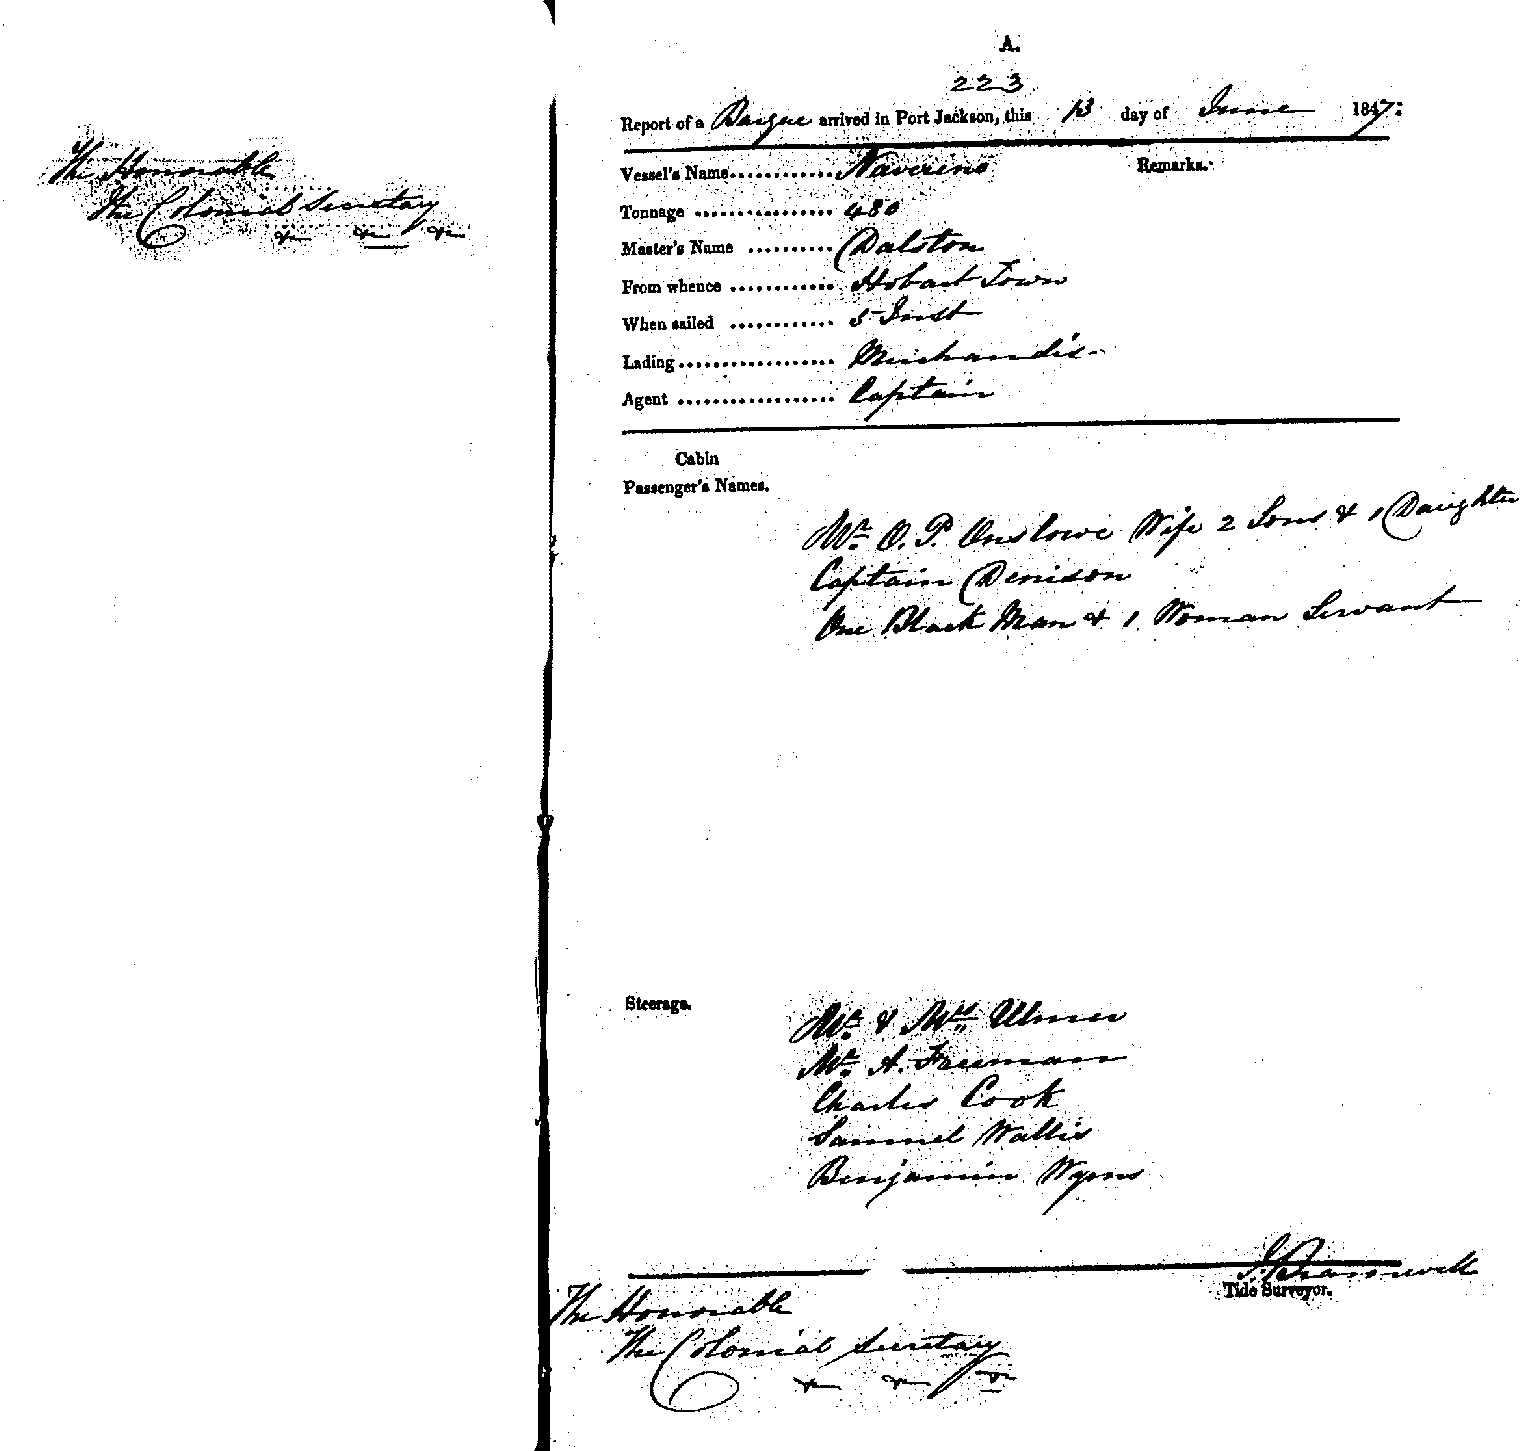 The Honorable
The Colonial Secretary
& & &
A.
223
Report of a Barque arrived in Port Jackson, this 13 day of June 1847:
Vessel's Name............ Naverino
Remarks.
Tonnage ................ 480
Master's Name .......... Dalston
From whence ............ Hobart Town
When sailed ............ 5 Inst
Lading .................. Merchandis-
Agent .................. Captain
Cabin
Passenger's Names.
Mr. O. P. Onslowe Wife 2 Sons & 1 Daughter
Captain Denison
One Black Man & 1 Woman Servant
Steerage.
Mr. & Mrs. Ulmer
Mr. A. Freeman
Charles Cook
Samuel Wallis
Benjamin Wyms
J. Bramwell
Tide Surveyor.
The Honorable
The Colonial Secretary
& & &